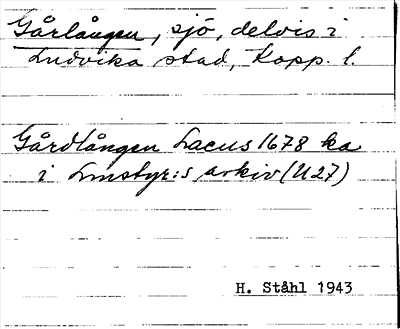 Gårlången, sjö, delvis i
Ludvika stad, Kopp. l.
Gårdlången Lacus 1678 ka
i Lmstyr:s arkiv (U 27)
H. Ståhl 1943